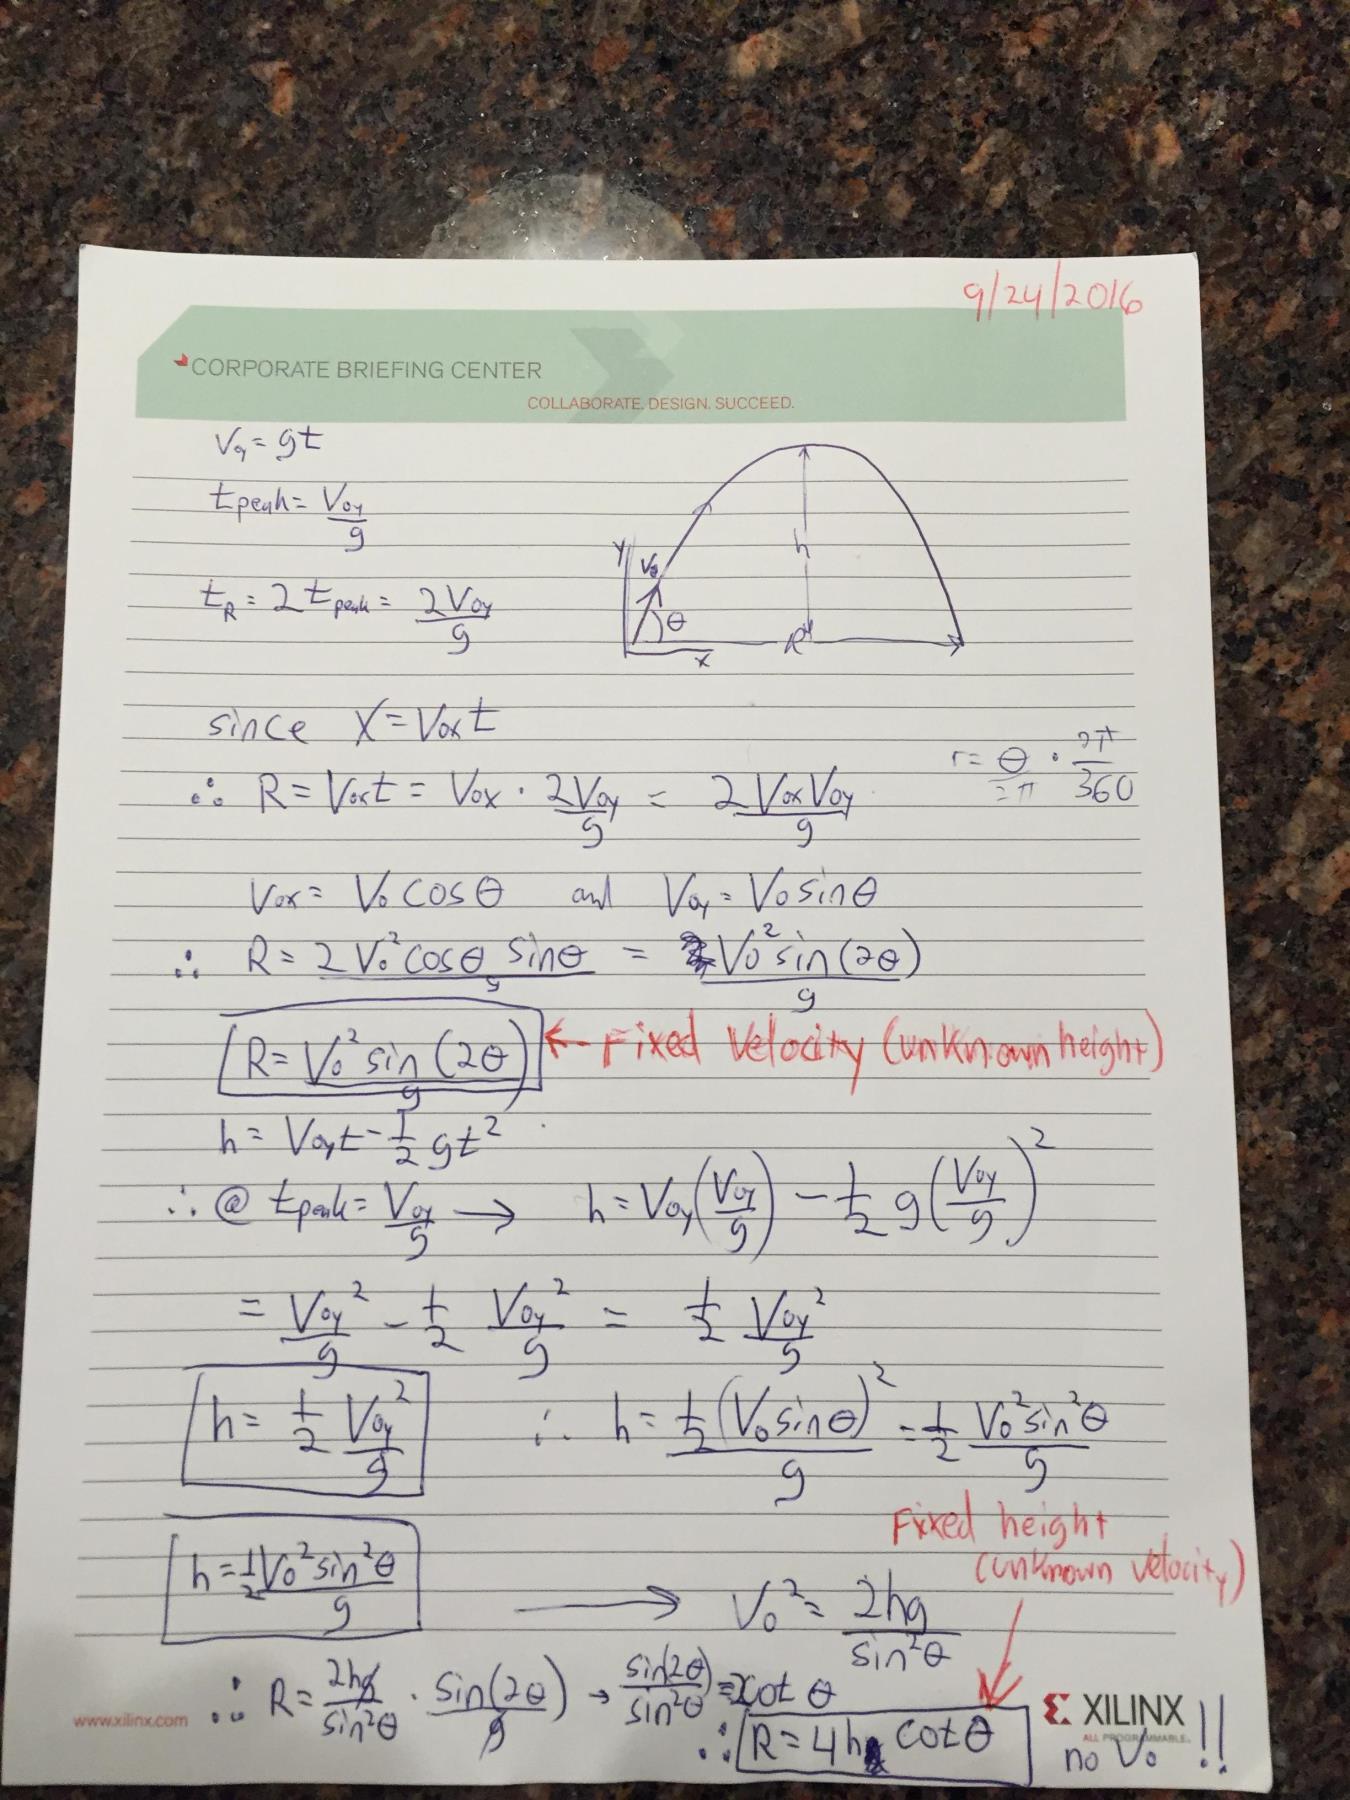 9/24/2016
CORPORATE BRIEFING CENTER
COLLABORATE. DESIGN. SUCCEED.
Vy = gt
tpeak = Voy/g
tR = 2 tpeak = 2Voy/g
Y
Vo
θ
h
R
x
since X = Vox t
r = θ/=π · 2π/360
∴ R = Vox t = Vox · 2Voy/g = 2 Vox Voy/g
Vox = Vo cos θ and Voy = Vo sin θ
∴ R = 2 Vo² cos θ sin θ/g = Vo² sin (2θ)/g
R = Vo² sin (2θ)/g ← Fixed Velocity (unknown height)
h = Voy t - 1/2 gt²
∴ @ tpeak = Voy/g → h = Voy (Voy/g) - 1/2 g (Voy/g)²
= Voy²/g - 1/2 Voy²/g = 1/2 Voy²/g
h = 1/2 Voy²/g ∴ h = 1/2 (Vo sin θ)²/g = 1/2 Vo² sin² θ/g
Fixed height
(unknown velocity)
h = 1/2 Vo² sin² θ/g → Vo² = 2hg/sin² θ
∴ R = 2hg/sin² θ · sin(2θ)/g → sin(2θ)/sin² θ = 2cot θ
∴ R = 4h cot θ
www.xilinx.com
XILINX
ALL PROGRAMMABLE.
no Vo !!